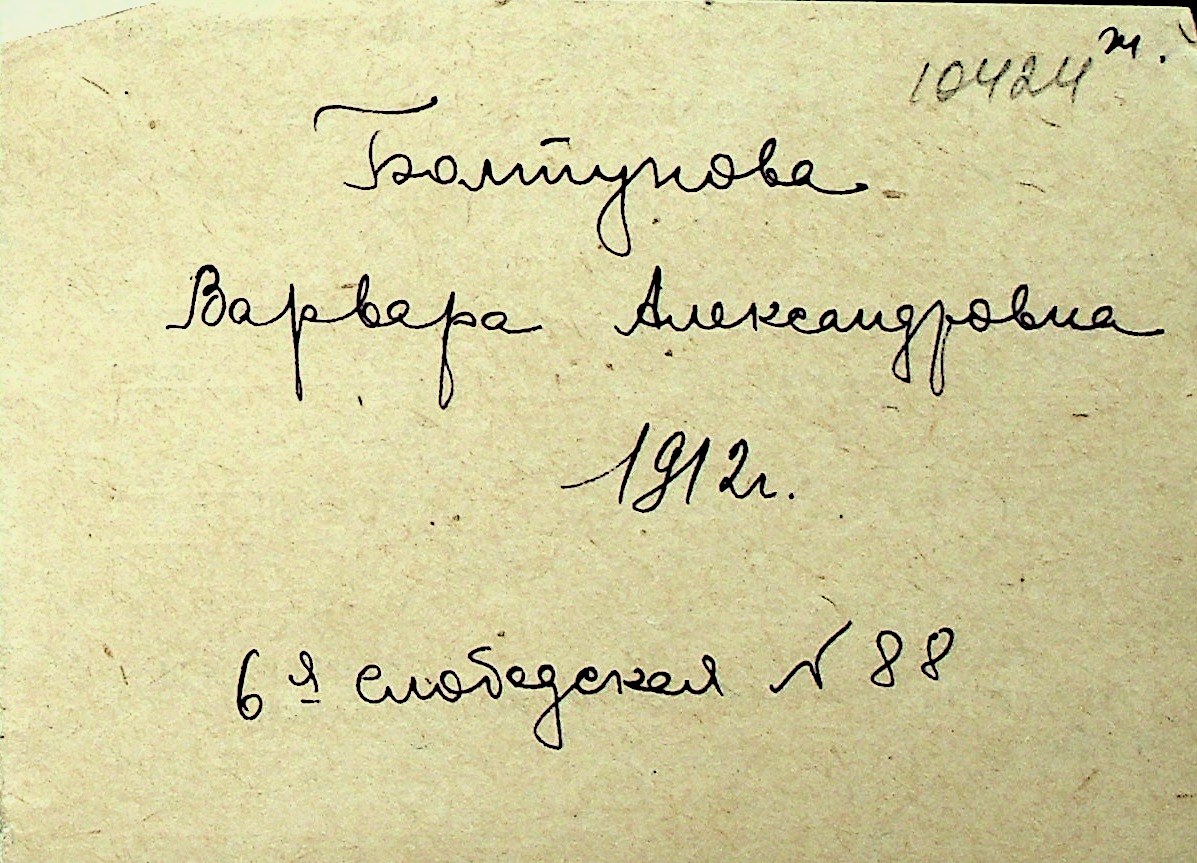 10424 т.
Болтунова
Варвара Александровна
1912г.
6я слободская N 88